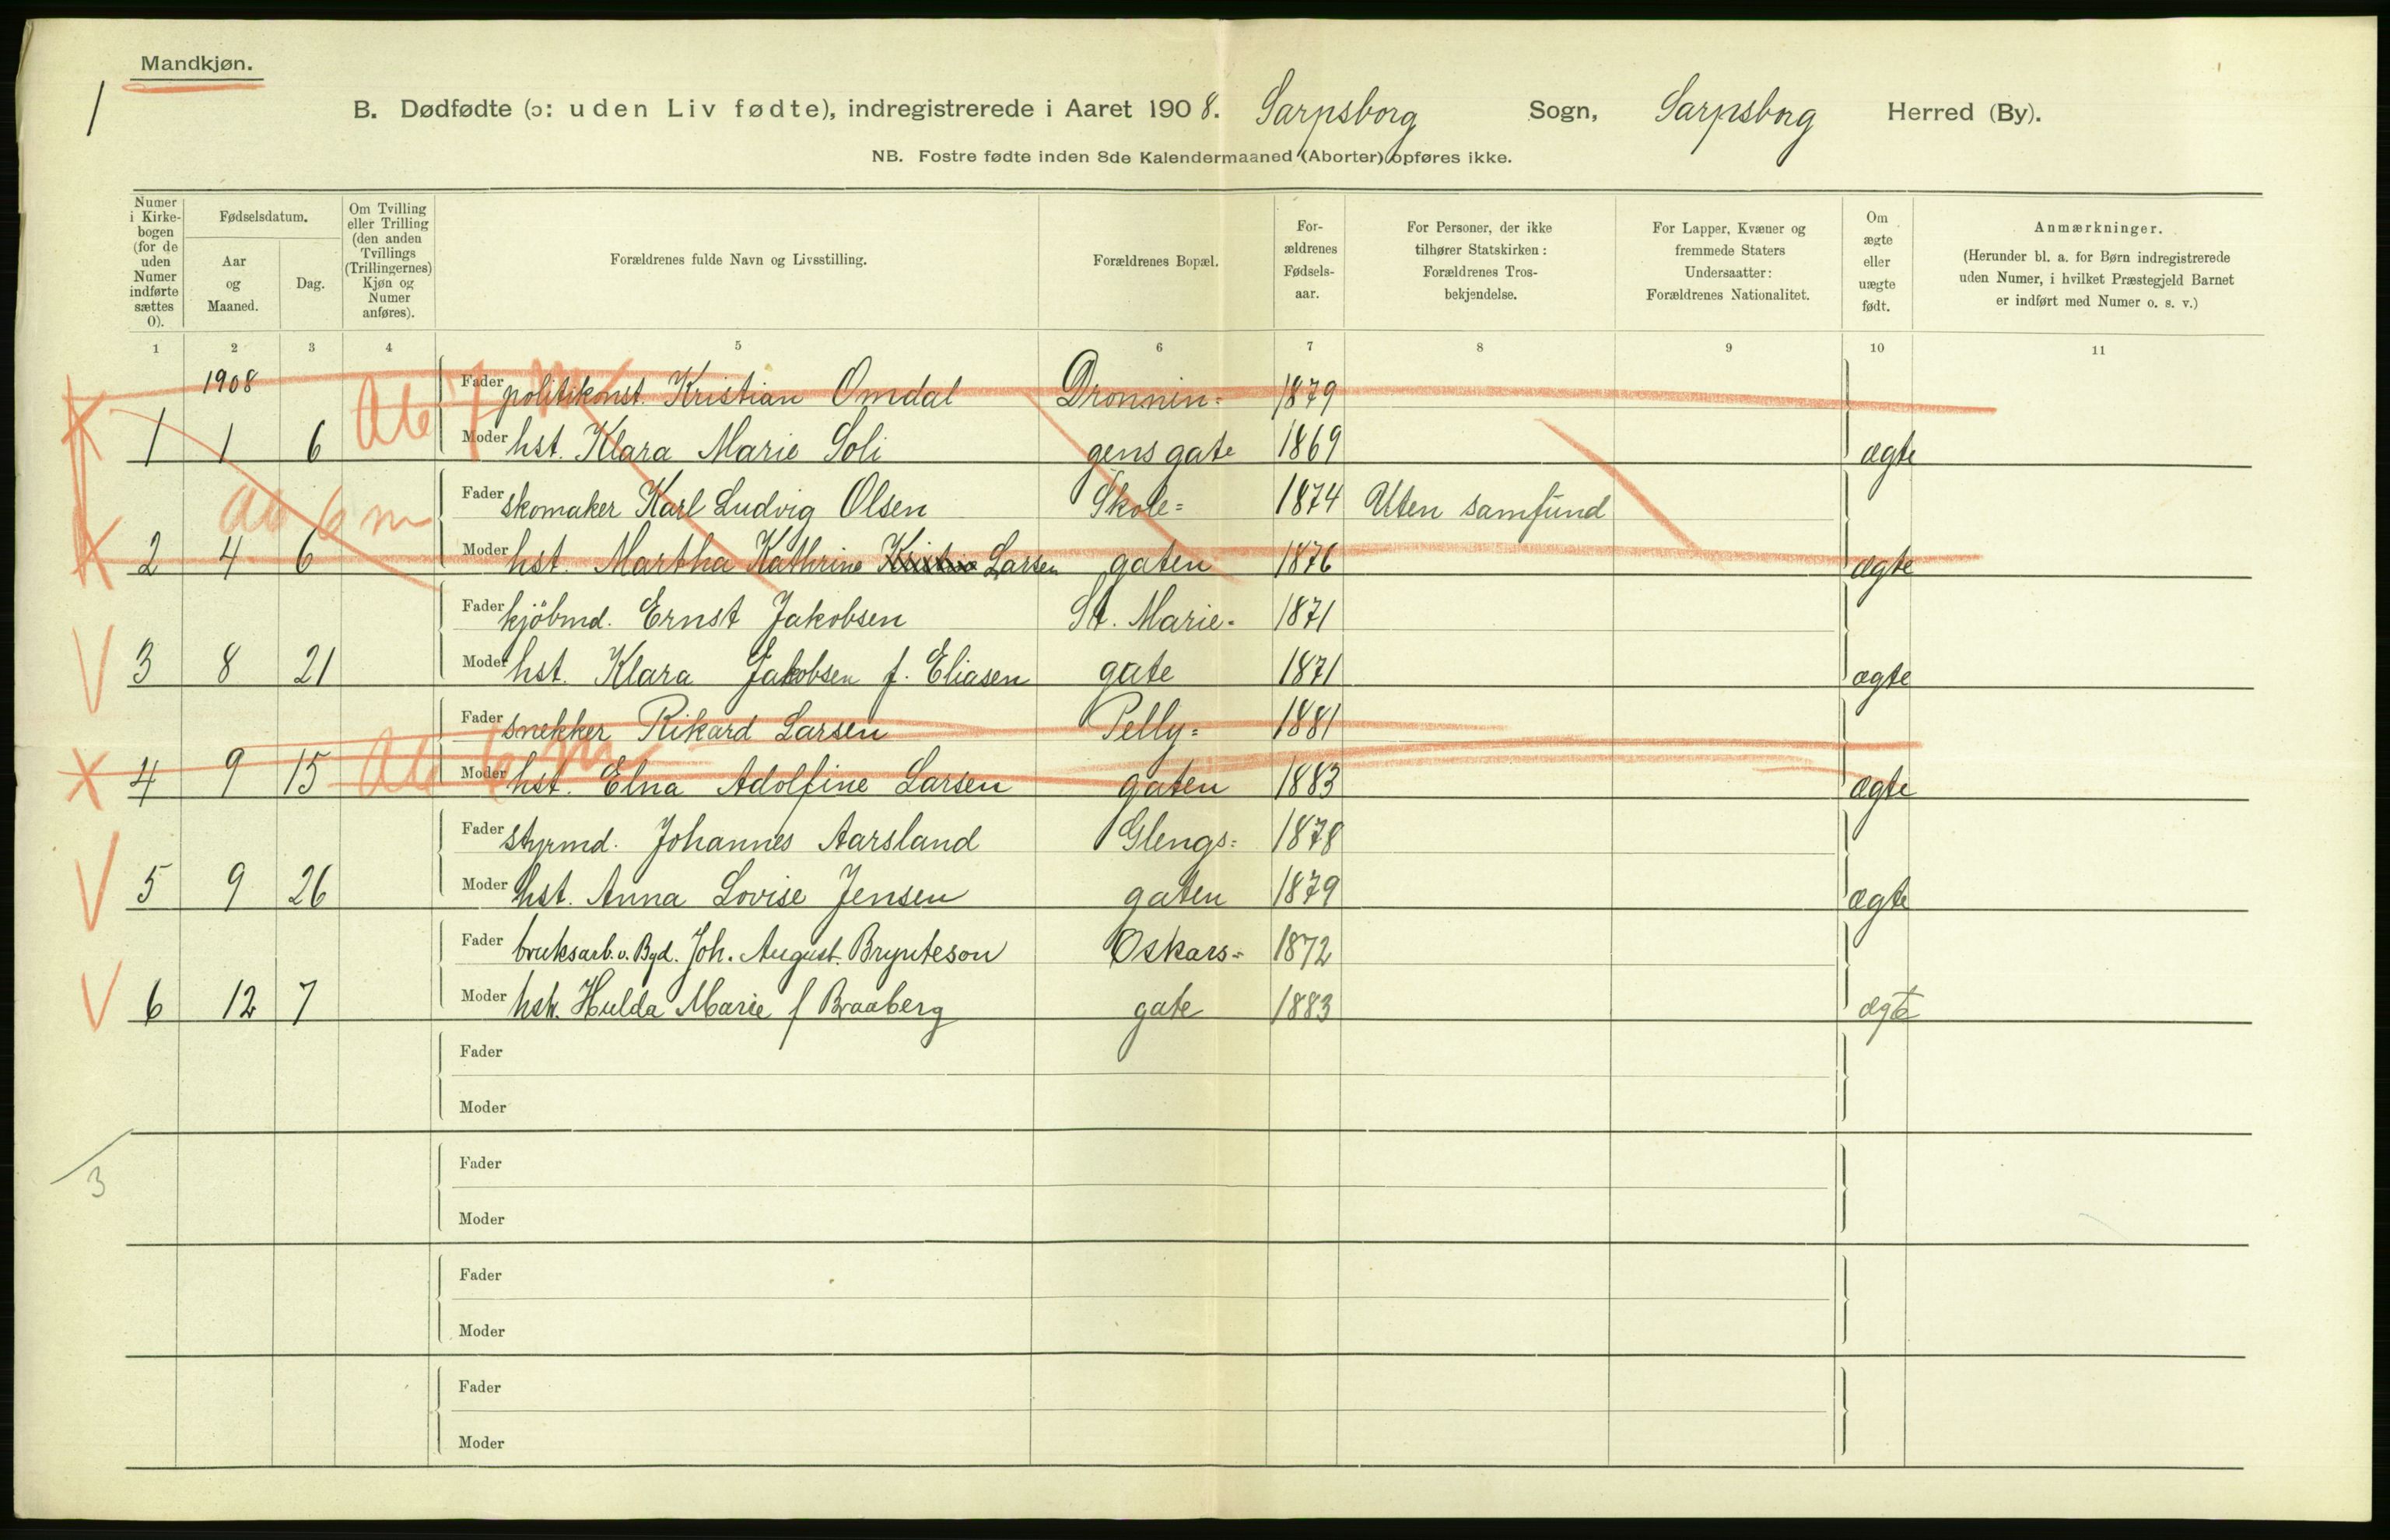 Mandkjøn.
1
B. Dødfødte (ɔ: uden Liv fødte), indregistrerede i Aaret 1908. Sarpsborg Sogn, Sarpsborg Herred (By).
NB. Fostre fødte inden 8de Kalendermaaned (Aborter) opføres ikke.
Numer i Kirke-
bogen
(for de
uden
Numer
indførte
sættes
0).
Fødselsdatum.
Aar
og
Maaned.
Dag.
Om Tvilling
eller Trilling
(den anden
Tvillings
(Trillingernes)
Kjøn og
Numer
anføres).
Forældrenes fulde Navn og Livsstilling.
Forældrenes Bopæl.
For-
ældrenes
Fødsels-
aar.
For Personer, der ikke
tilhører Statskirken:
Forældrenes Tros-
bekjendelse.
For Lapper, Kvæner og
fremmede Staters
Undersaatter:
Forældrenes Nationalitet.
Om
ægte
eller
uægte
født.
Anmærkninger.
(Herunder bl. a. for Børn indregistrerede
uden Numer, i hvilket Præstegjeld Barnet
er indført med Numer o. s. v.)
1 2 3 4 5 6 7 8 9 10 11
1908 Fader politikonst. Kristian Omdal Dronnin= 1879
1 1 6 Ab 7 m Moder hst. Klara Marie Soli gens gate 1869 ægte
Fader skomaker Karl Ludvig Olsen Skole= 1874 Uten samfund
ab 6 m
2 4 6 Moder hst. Martha Kathrine Larsen gaten 1876 ægte
Fader kjöbmd. Ernst Jakobsen St. Marie- 1871
V 3 8 21 Moder hst. Klara Jakobsen f. Eliasen gate 1871 ægte
Fader snekker Rikard Larsen Pelly= 1881
X 4 9 15 Ab 6 m Moder hst. Elna Adolfine Larsen gaten 1883 ægte
Fader styrmd. Johannes Aarsland Glengs= 1878
V 5 9 26 Moder hst. Anna Lovise Jensen gaten 1879 ægte
Fader bruksarb. v. Bgd. Joh. August Brynteson Oskars= 1872
V 6 12 7 Moder hst. Hulda Marie f Braaberg gate 1883 ægte
Fader
Moder
3
Fader
Moder
Fader
Moder
Fader
Moder